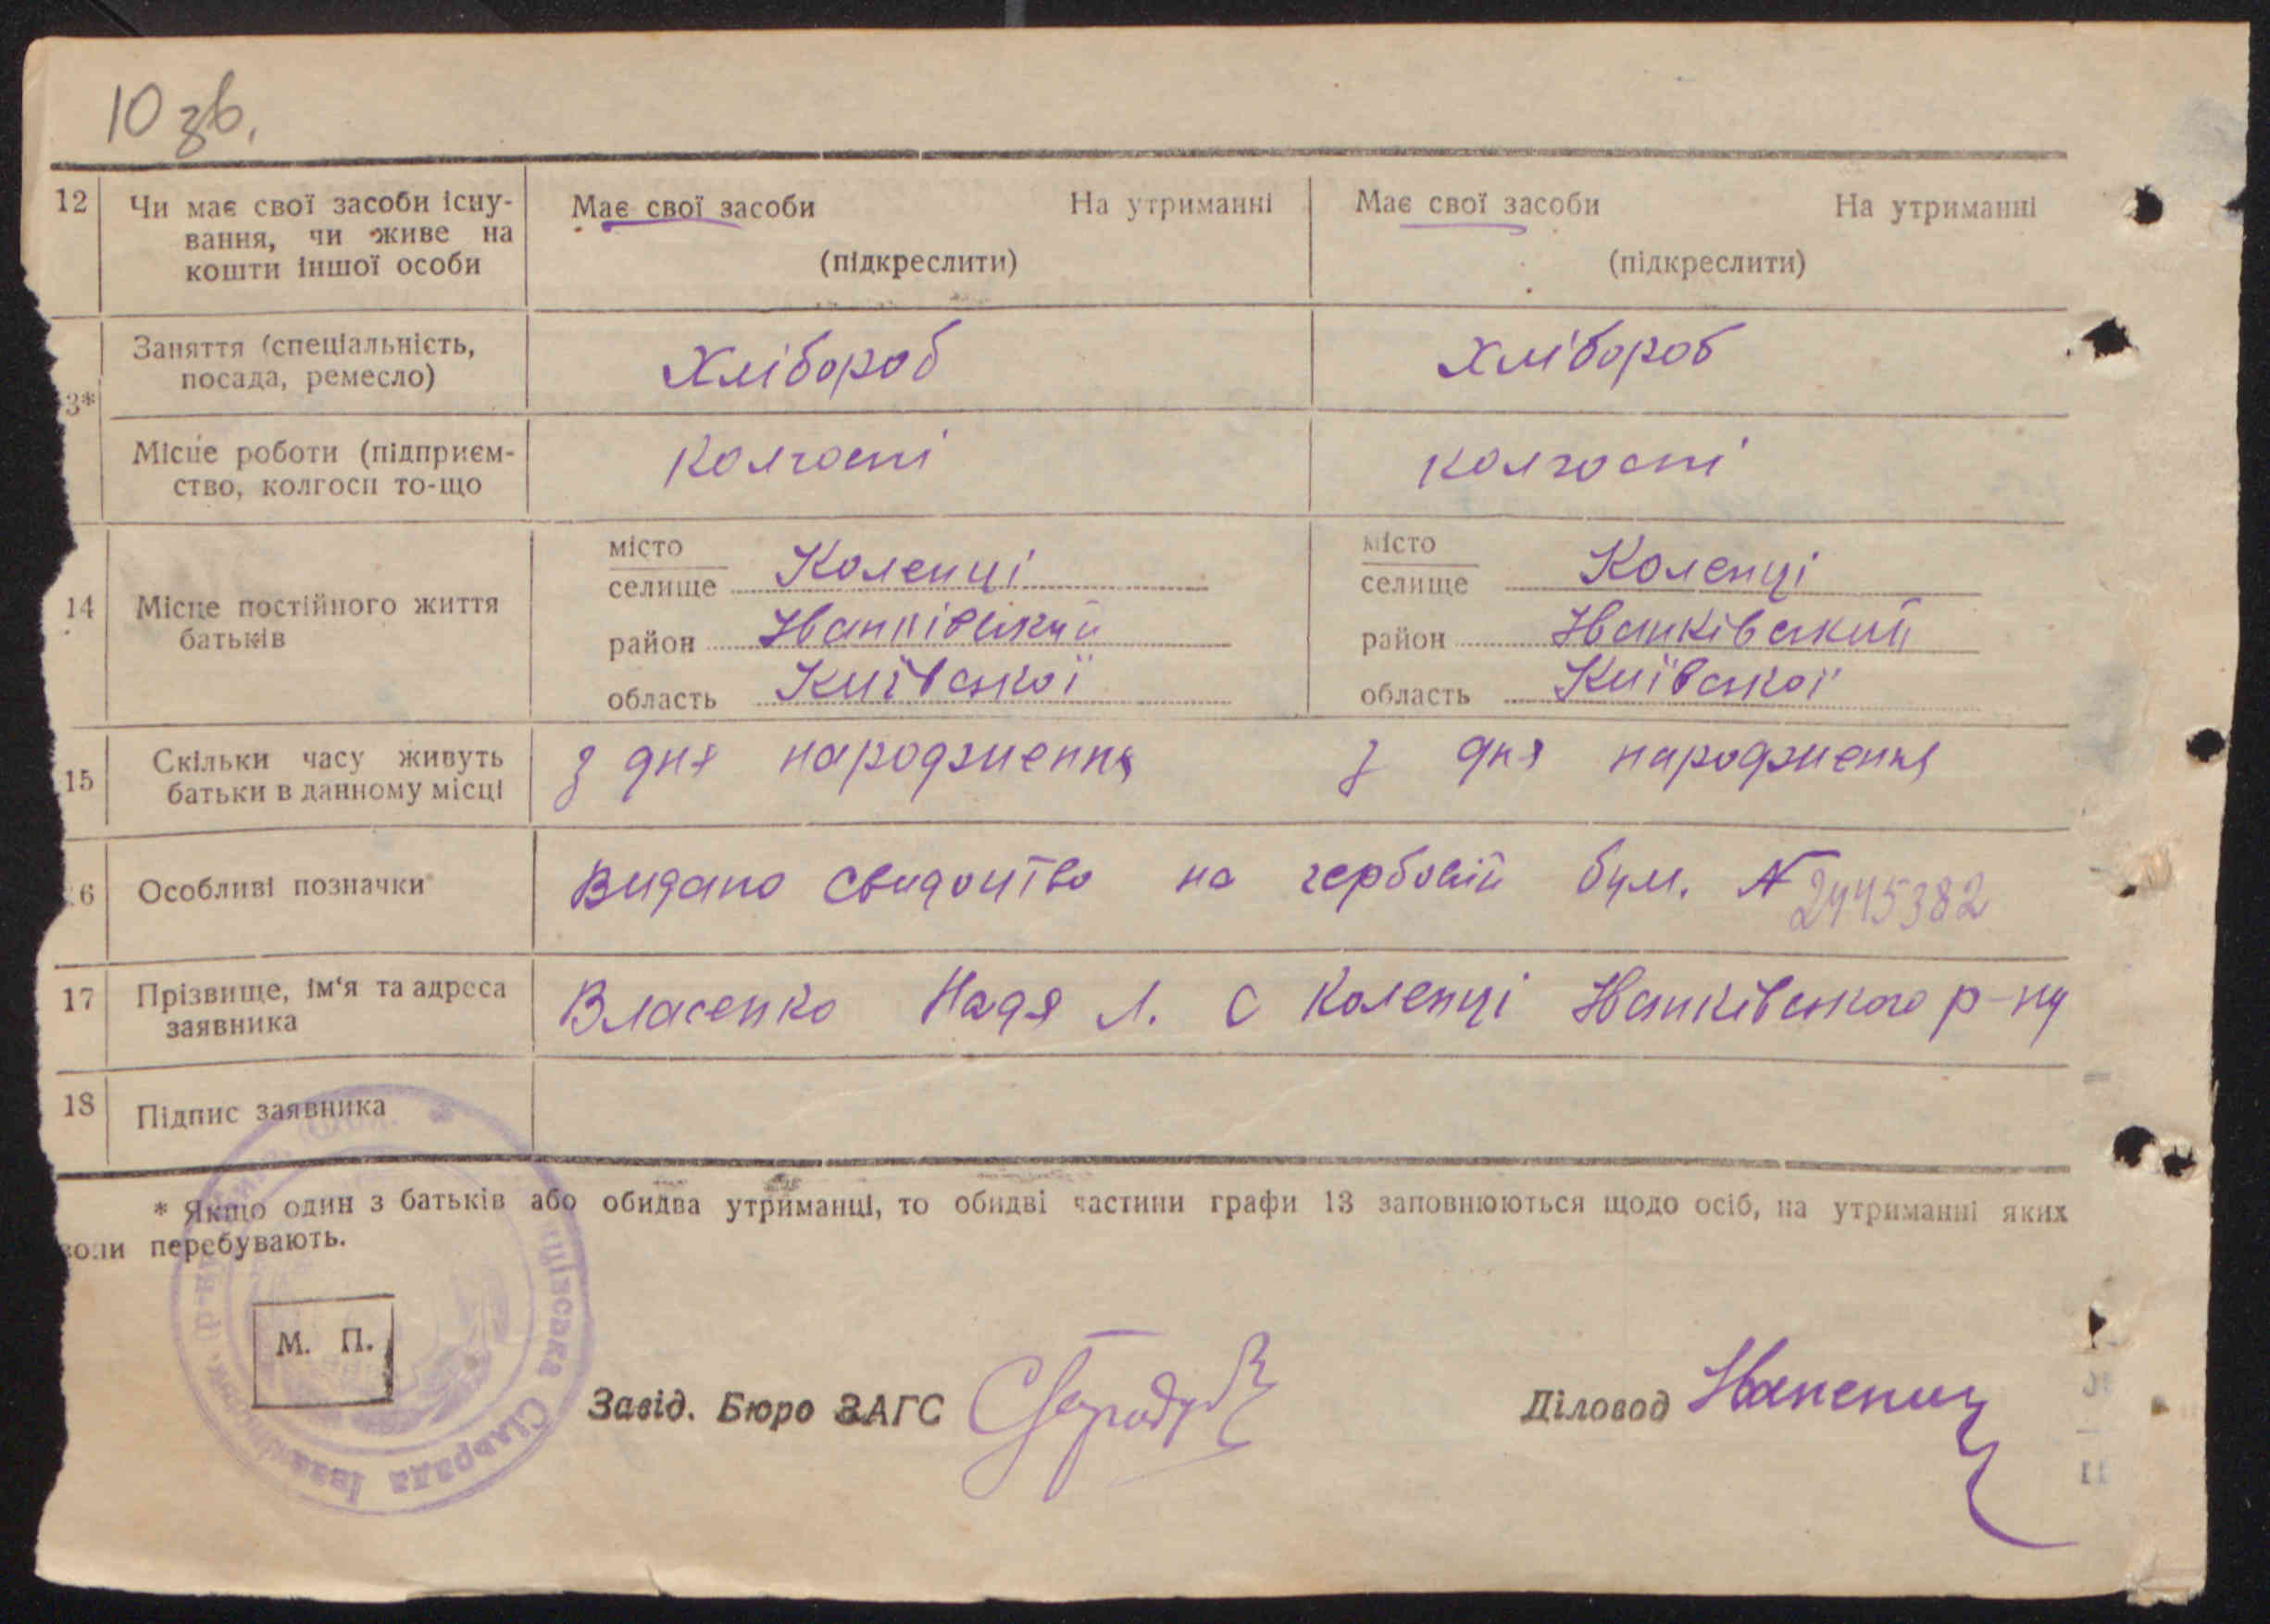 10 зв.
12 Чи має свої засоби існу- Має свої засоби На утриманні Має свої засоби На утриманні
вання, чи живе на
кошти іншої особи (підкреслити) (підкреслити)
Заняття (спеціальність, Хлібороб Хлібороб
посада, ремесло)
3*
Місце роботи (підприєм- колгоспі колгоспі
ство, колгосп то-що
місто місто
селище Коленці селище Коленці
14 Місце постійного життя
батьків
район Іванківський район Іванківський
область Київської область Київської
15 Скільки часу живуть з дня народження з дня народження
батьки в данному місці
6 Особливі позначки Видано свидоцтво на гербовій бум. № 2445382
17 Прізвище, ім'я та адреса Власенко Надя Л. с Коленці Іванківського р-ну
заявника
18 Підпис заявника
* Якщо один з батьків або обидва утриманці, то обидві частини графи 13 заповнюються щодо осіб, на утриманні яких
вони перебувають.
М. П.
Завід. Бюро ЗАГС Діловод
Сільрада